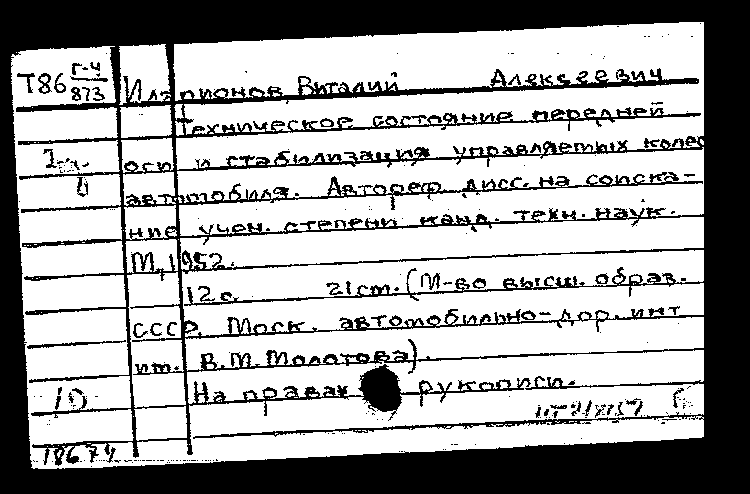 Т86 Г-4
873
Иларионов, Виталий Алексеевич
Техническое состояние передней
оси и стабилизация управляемых колес
автомобиля. Автореф. дисс. на соиска-
ние учен. степени канд. техн. наук.
М., 1952.
12 с. 21 см. (М-во высш. образ.
СССР. Моск. автомобильно-дор. инт
им. В.М. Молотова).
На правах рукописи.
18674